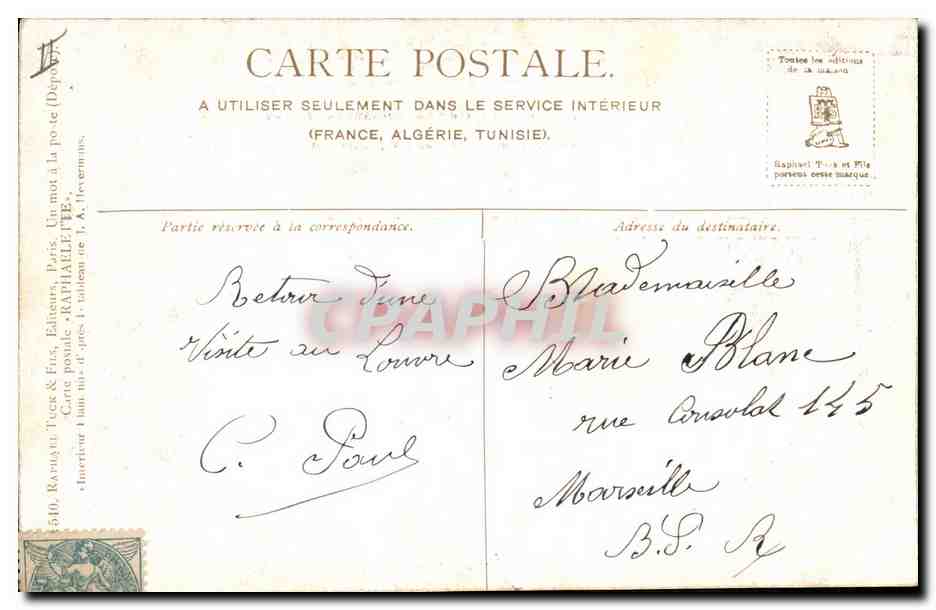 II
CARTE POSTALE.
A UTILISER SEULEMENT DANS LE SERVICE INTÉRIEUR
(FRANCE, ALGÉRIE, TUNISIE).
Toutes les éditions
de la maison
Raphael Tuck et Fils
portent cette marque.
Partie réservée à la correspondance.
Adresse du destinataire.
Retour d'une
Visite au Louvre
C. Paul
Mademaiselle
Marie Blanc
rue Consolat 145
Marseille
B. R.
CPAPHIL
540. RAPHAEL TUCK & FILS, Editeurs, Paris. Un mot à la poste (Déposé).
Carte postale «RAPHAELETTE».
«Intérieur Flamand» d'après le tableau de J. A.